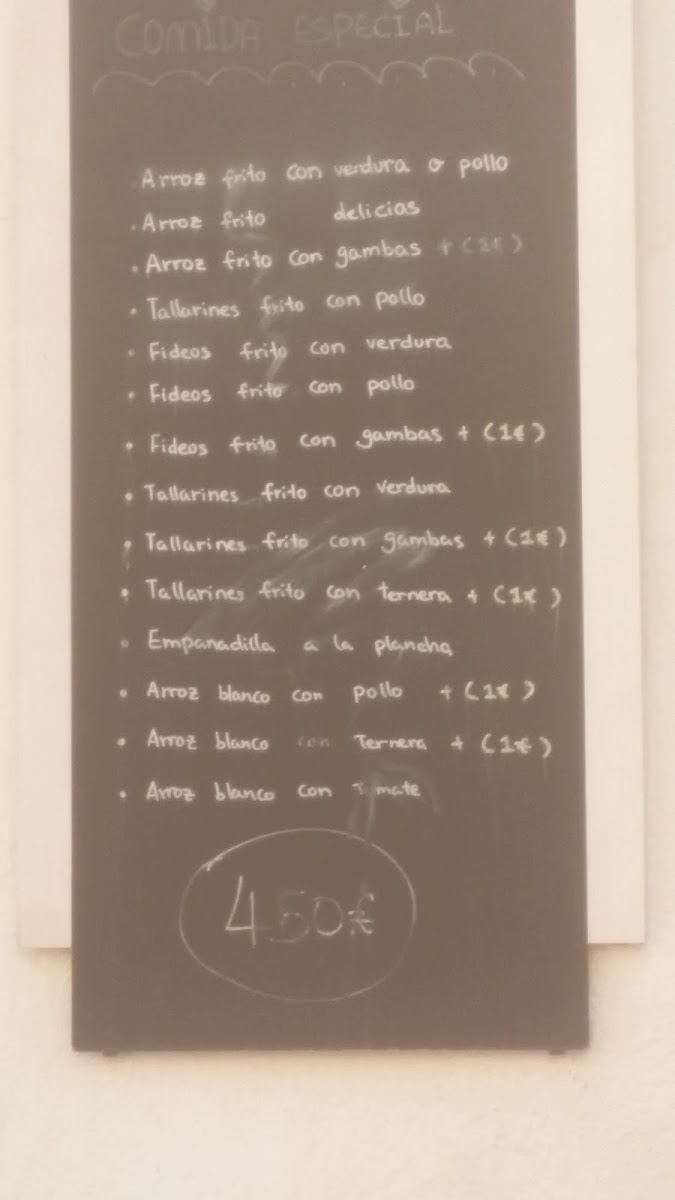 COMIDA ESPECIAL
. Arroz frito con verdura o pollo
. Arroz frito delicias
. Arroz frito con gambas + (1€)
• Tallarines frito con pollo
• Fideos frito con verdura
• Fideos frito con pollo
• Fideos frito con gambas + (1€)
• Tallarines frito con verdura
• Tallarines frito con gambas + (1€)
• Tallarines frito con ternera + (1€)
• Empanadilla a la plancha
• Arroz blanco con pollo + (1€)
• Arroz blanco con Ternera + (1€)
• Arroz blanco con T mate
4.50€